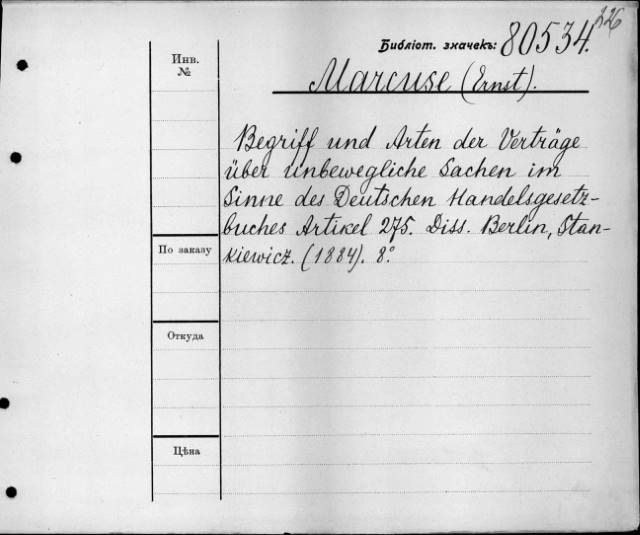 326
Библіот. значекъ: 80534.
Инв.
№
Marcuse (Ernst).
Begriff und Arten der Verträge
über unbewegliche Sachen im
Sinne des Deutschen Handelsgesetz-
buches Artikel 275. Diss. Berlin, Stan-
kiewicz. (1884). 8°.
По заказу
Откуда
Цѣна